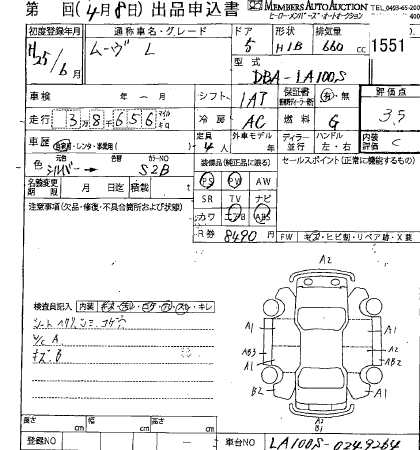 第 回(4月8日)出品申込書 MEMBERS AUTO AUCTION
ヒーローメンバーズ・オートオークション TEL.0493-65-200
初度登録年月 通称車名・グレード ドア 形状 排気量
H25/6月 ムーヴ L 5 H/B 660 cc 1551
型式
DBA-LA100S
車検 年 月 シフト IAT 保証書 有・無 評価点
走行 3万8千656 マイル キロ 冷房 AC 燃料 G 3.5
車歴 自家用・レンタ・事業用( ) 定員 4人 外車モデル 年 ディーラー 並行 ハンドル 左・右 内装 C
色 元色 シルバー 色替 カラーNO S28
装備品(純正品に限る) セールスポイント(正常に機能するもの)
名義変更期限 月 日迄 積載
PS PW AW
SR TV ナビ
カワ エアB ABS
注意事項(欠品・修復・不具合箇所および状態)
R券 8490
FW キズ・ヒビ割・リペア跡・X要
検査員記入 内装 キレ
シート
ツメ A
キズ B
A2
A1 A1
AB3 A2
A1 A2
B2 A1
A2
B1
長さ cm 幅 cm 高さ cm
登録NO 車台NO LA100S-0249264